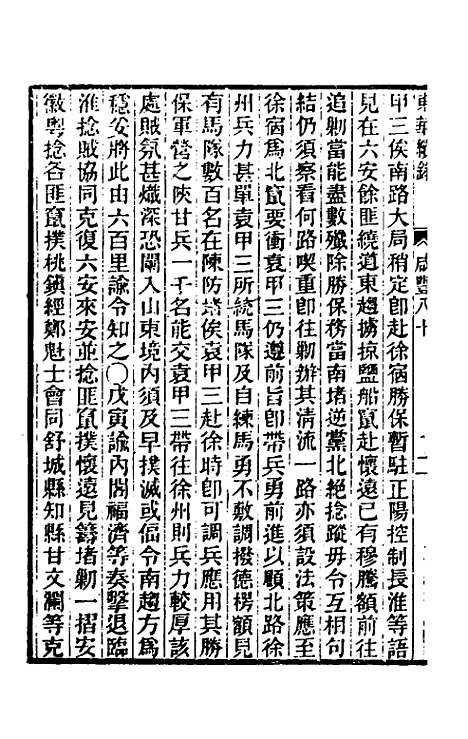 東華續錄 咸豐八十
甲三俟南路大局稍定卽赴徐宿勝保暫駐正陽控制長淮等語
見在六安餘匪繞道東趨擄掠鹽船竄赴懷遠已有穆騰額前往
追勦當能盡數殲除勝保務當南堵逆黨北絶捻蹤毋令互相句
結仍須察看何路喫重卽往勦辦其清流一路亦須設法策應至
徐宿爲北竄要衝袁甲三仍遵前旨卽帶兵勇前進以顧北路徐
州兵力甚單袁甲三所統馬隊及自練馬勇不敷調撥德楞額見
有馬隊數百名在陳防堵俟袁甲三赴徐時卽可調兵應用其勝
保軍營之陝甘兵一千名能交袁甲三帶往徐州則兵力較厚該
處賊氛甚熾深恐闌入山東境內須及早撲滅或偪令南趨方爲
穩妥將此由六百里諭令知之○戊寅諭內閣福濟等奏擊退臨
淮捻賊協同克復六安來安並捻匪竄撲懷遠見籌堵勦一摺安
徽粵捻各匪竄撲桃鎮經鄭魁士會同舒城縣知縣甘文瀾等克